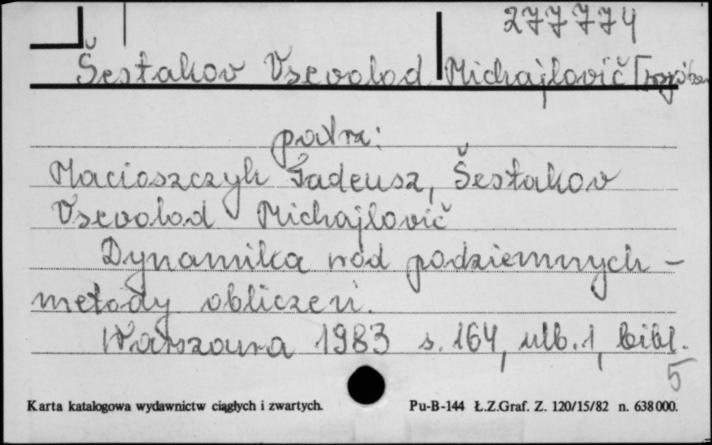 277774
Šestakov Vsevolod Michajlovič
patrz:
Macioszczyk Tadeusz, Šestakov
Vsevolod Michajlovič
Dynamika wód podziemnych -
metody obliczeń.
Warszawa 1983 s. 164, nlb. 1, bibl.
5
Karta katalogowa wydawnictw ciągłych i zwartych. Pu-B-144 Ł.Z.Graf. Z. 120/15/82 n. 638000.